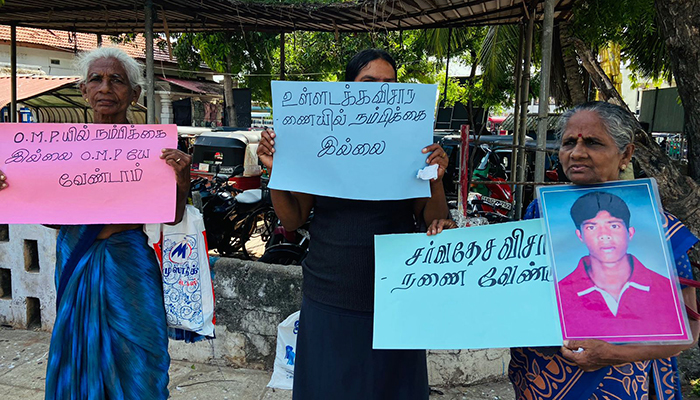 O.M.P யில் நம்பிக்கை
இல்லை O.M.P யே
வேண்டாம்
உள்ளடக்கவிசார
- ணையில் நம்பிக்கை
இல்லை
சர்வதேச விசா
- ரணை வேண்